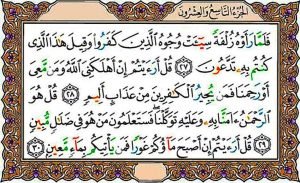 الجزء التاسع والعشرون
فَلَمَّا رَأَوْهُ زُلْفَةً سِيٓـَٔتْ وُجُوهُ ٱلَّذِينَ كَفَرُوا۟ وَقِيلَ هَٰذَا ٱلَّذِى
كُنتُم بِهِۦ تَدَّعُونَ ٢٧ قُلْ أَرَءَيْتُمْ إِنْ أَهْلَكَنِىَ ٱللَّهُ وَمَن مَّعِىَ
أَوْ رَحِمَنَا فَمَن يُجِيرُ ٱلْكَٰفِرِينَ مِنْ عَذَابٍ أَلِيمٍ ٢٨ قُلْ هُوَ
ٱلرَّحْمَٰنُ ءَامَنَّا بِهِۦ وَعَلَيْهِ تَوَكَّلْنَا فَسَتَعْلَمُونَ مَنْ هُوَ فِى ضَلَٰلٍ مُّبِينٍ
٢٩ قُلْ أَرَءَيْتُمْ إِنْ أَصْبَحَ مَآؤُكُمْ غَوْرًا فَمَن يَأْتِيكُم بِمَآءٍ مَّعِينٍۭ ٣٠